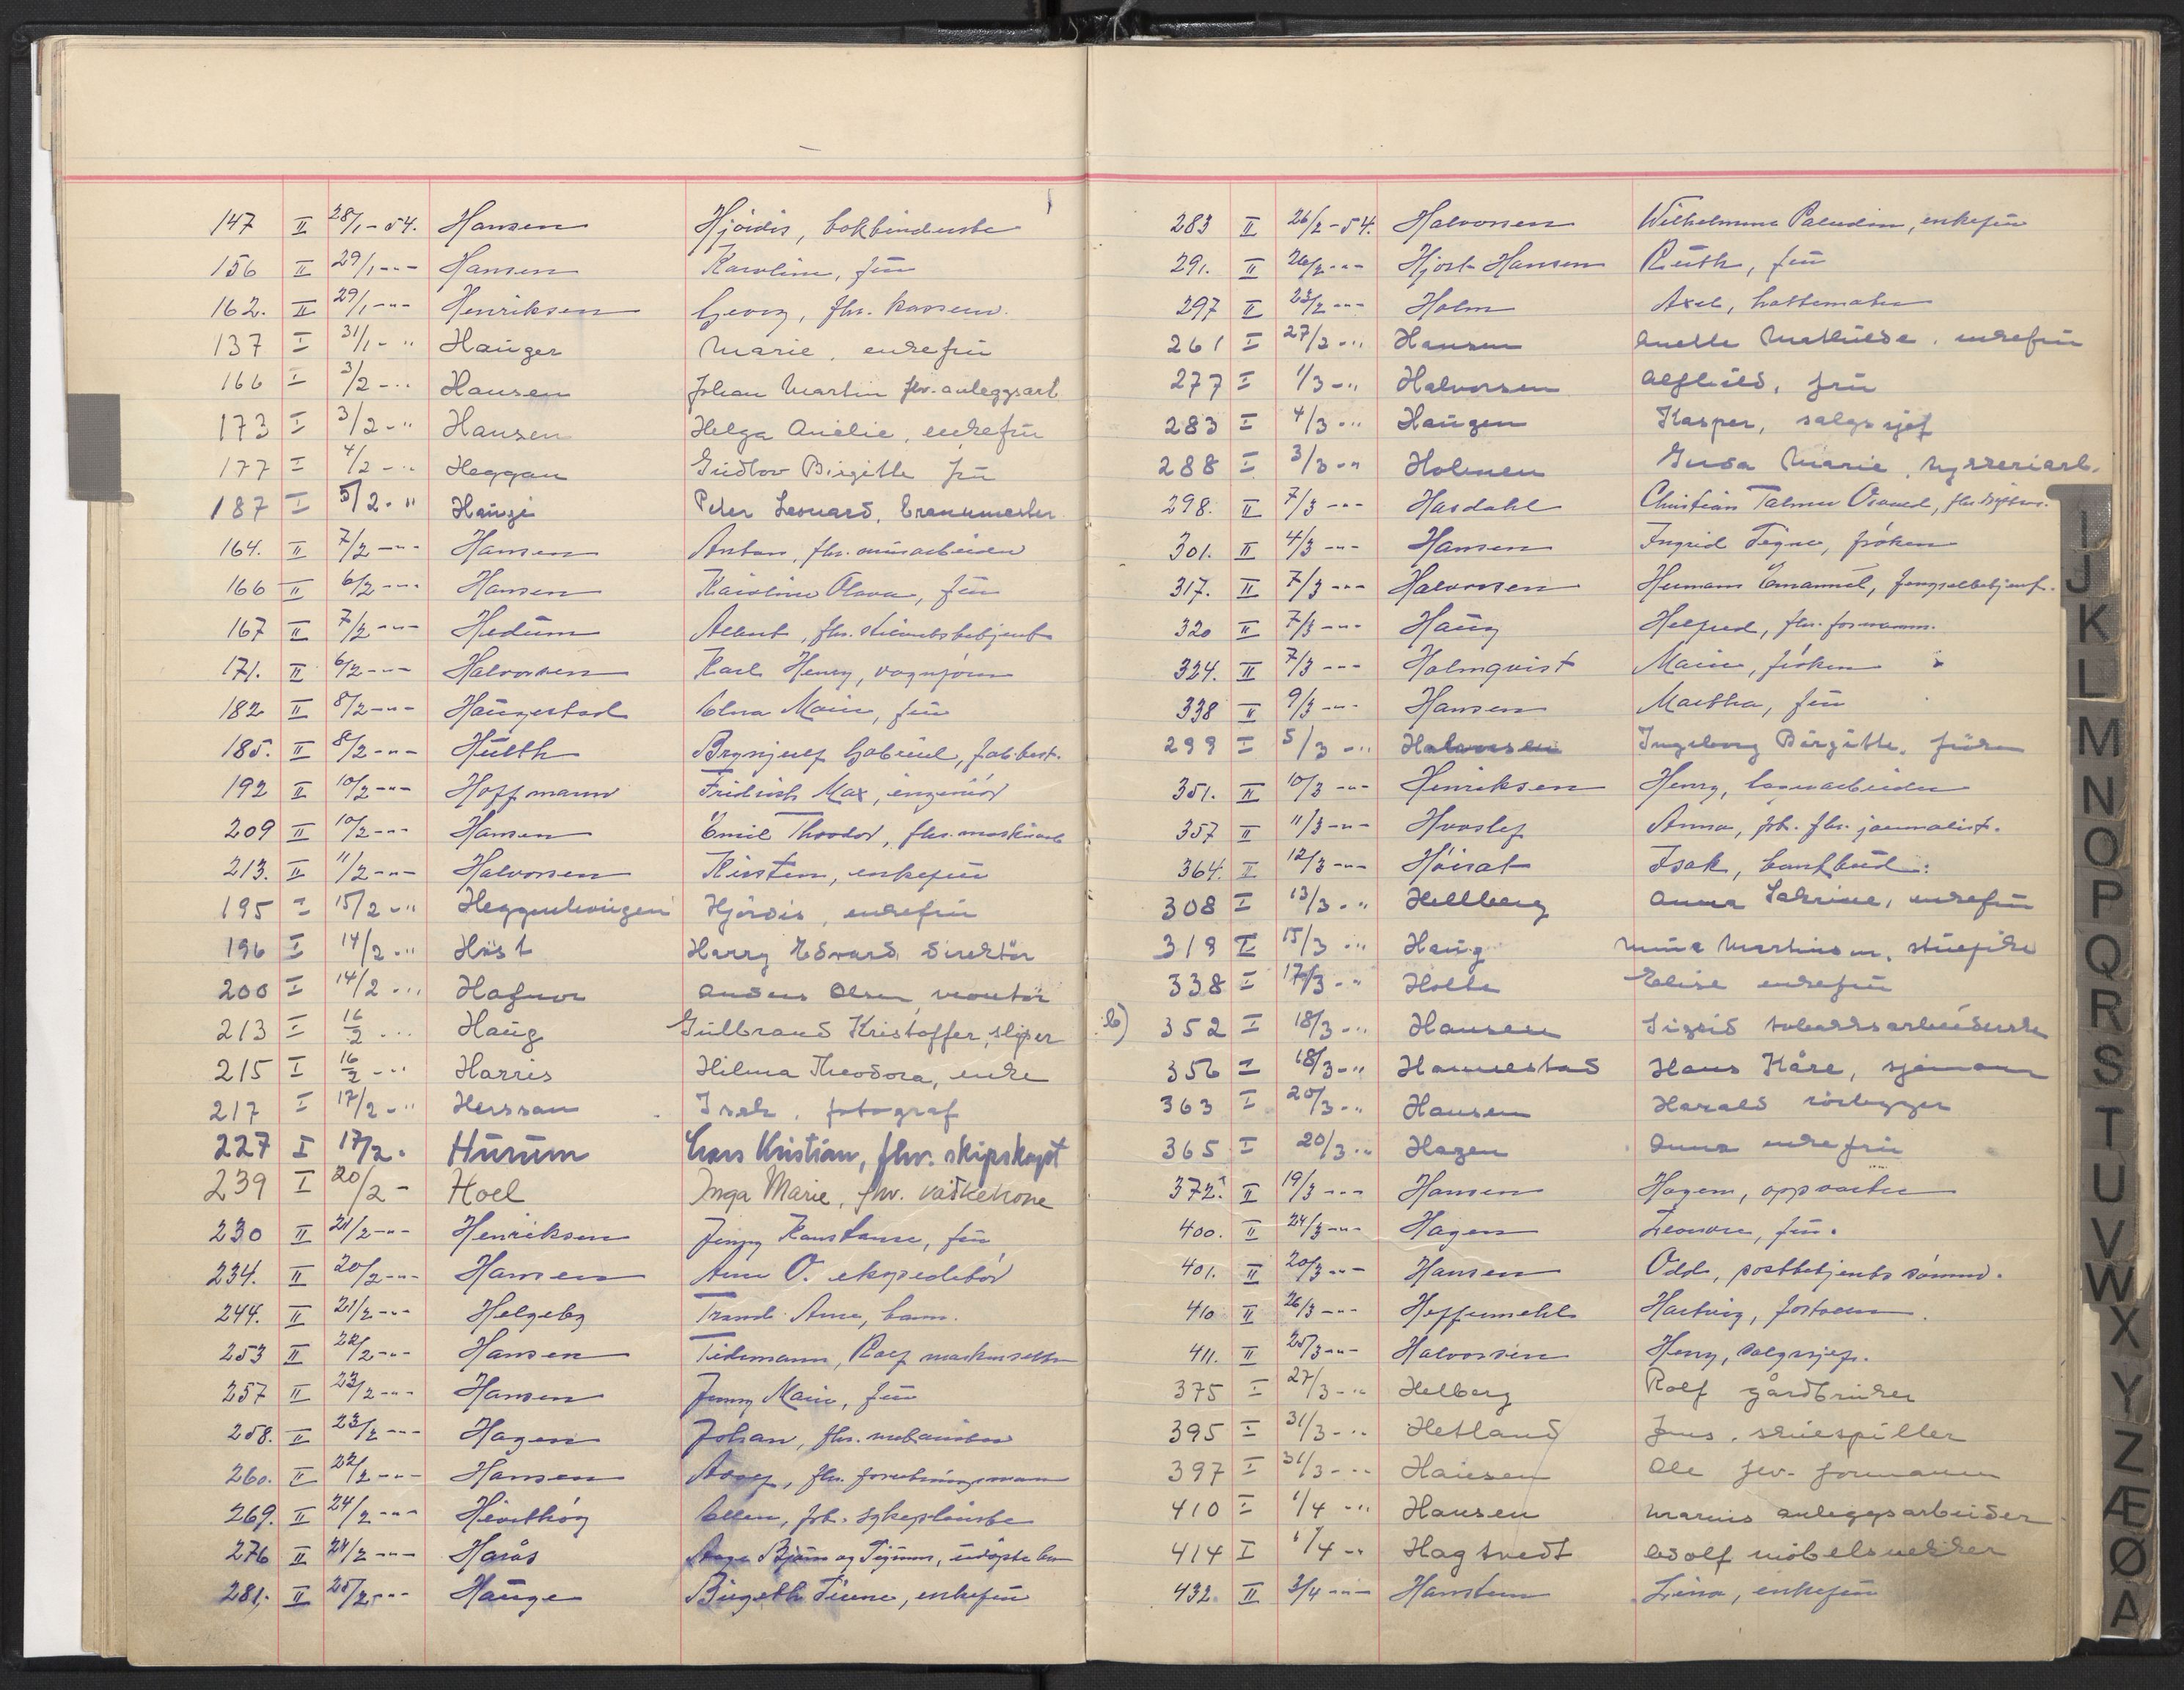 147 II 28/1-54. Hansen Hjørdis, bokbinderske
156 II 29/1 -"- Hansen Karoline, frü
162. II 29/1 -"- Henriksen Georg, fhv. kasserer.
137 I 31/1 - " Haüger Marie, enkefrü
166 I 3/2 - " Hansen Johan Martin fhv. anleggsarb
173 I 3/2 - " Hansen Helga Amelie, enkefrü
177 I 4/2 - " Heggan Güdlov Birgitte frü
187 I 5/2 - " Haüge Peder Leonard, branmester
164. II 7/2 -"- Hansen Anton, fhv. mürarbeider
166 II 6/2 -"- Hansen Karoline Olava, frü
167 II 7/2 -"- Hedüm Albert, fhv.
171. II 6/2 -"- Halvorsen Karl Henry, vognfører
182 II 8/2 -"- Haügerstad Elna Marie, frü
185. II 8/2 -"- Hülth Brynjulf Gabriel, fab.best.
192 II 10/2 -"- Hoffmann Fridrich Max, ingeniör
209 II 10/2 -"- Hansen Emil Theodor, fhv. maskinarb
213. II 11/2 -"- Halvorsen Kirsten, enkefrü
195 I 15/2 - " Heggenhoügen Hjördis, enkefrü
196 I 14/2 - " Høst Harry Edvard, direktör
200 I 14/2 - " Hafnor Anders Olsen, montör
213 I 16/2 - " Haüg Gülbrand Kristoffer, sliper
215 I 16/2 - " Harris Hilma Theodora, enke
217 I 17/2 - " Herssan Isak, fotograf
227 I 17/2 - Hürüm Lars Kristian, fhv. skipskapt
239 I 20/2 - Hoel Inga Marie, fhv. vaskekone
230 II 21/2 -"- Henriksen Jenny Konstanse, frü
234. II 20/2 -"- Hansen Arne O. ekspeditör
244. II 21/2 -"- Helgeby Trond Arne, barn.
253 II 22/2 -"- Hansen Tidemann, Rolf maskinsetter
257 II 23/2 -"- Hansen Jenny Marie, frü
258. II 23/2 -"- Hagen Johan, fhv. mekaniker
260. II 22/2 -"- Hansen Adolf, fhv.
269. II 24/2 -"- Hevrhøy Ellen, frk. sykepleierske
276 II 24/2 -"- Harås Aage Bjørn og Sigmund, üdöpte barn
281. II 25/2 -"- Haüge Birgith Tirene, enkefrü
283 II 26/2-54. Halvorsen Wilhelmine Paludine, enkefrü
291. II 26/2 -"- Hjort-Hansen Rüth, frü
297 II 25/2 -"- Holm Axel, hattemaker
261 I 27/2 - " Hansen Anette Mathilde, enkefrü
277 I 1/3 - " Halvorsen Alfhild, frü
283 I 4/3 - " Haügen Kasper, salgssjef
288 I 3/3 - " Holmen Güda Marie, bryggeriarb.
298. II 7/3 -"- Hasdahl Christian Talmer Osvald, fhv.
301. II 4/3 -"- Hansen Ingrid Signe, frøken
317. II 7/3 -"- Halvorsen Hermann Emanuel, fengselbetjent.
320 II 7/3 -"- Haüg Helfred, fhv. formann.
324. II 7/3 -"- Holmqvist Marie, frøken
338 II 9/3 -"- Hansen Martha, frü
299 I 5/3 - " Halvorsen Ingeborg Birgitte, früken
351. II 10/3 -"- Henriksen Henry, lagerarbeider
357 II 11/3 -"- Hvoslef Anna, frk. fhv. journalist.
364. II 12/3 -"- Høisat Isak, bankbüd.
308 I 13/3 - " Hellberg Anna Katrine, enkefrü
318 I 15/3 - " Haüg Mina Martinsen, stüepike
338 I 17/3 - " Holte Elise enkefrü
b) 352 I 18/3 - " Hansen Sigrid tobakksarbeiderske
356 I 18/3 - " Hannestad Hans Kåre, sjømann
363 I 20/3 - " Hansen Harald rörlegger
365 I 20/3 - " Hagen Anna enkefrü
372. II 19/3 -"- Hansen Hagen, oppvarter
400. II 24/3 -"- Hagen Leonore, frü.
401. II 20/3 -"- Hansen Odd, postbetjents sønn.
410 II 26/3 -"- Heffermehl Hartvig, forstander.
411. II 25/3 -"- Halvorsen Henry, salgssjef.
375 I 27/3 - " Helberg Rolf gårdbrüker
395 I 31/3 - " Hetland Jens, sküespiller
397 I 31/3 - " Hansen Ole fhv. formann
410 I 1/4 - " Hansen Marius anleggsarbeider
414 I 1/4 - " Hagtvedt Adolf möbelsnekker
432 II 3/4 -"- Hansteen Lina, enkefrü
I
J
K
L
M
N
O
P
Q
R
S
T
U
V
W
X
Y
Z
Æ
Ø
A